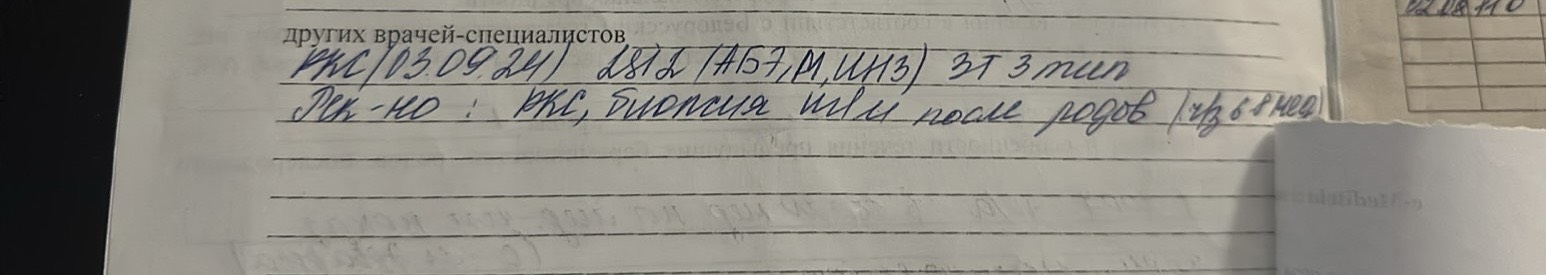 других врачей-специалистов
РКС (03.09.24) (АБЭ, М, ИНЗ) ЗТ 3 тип
Рек-но : РКС, биопсия ш/м после родов (ч/з 6-8 нед)